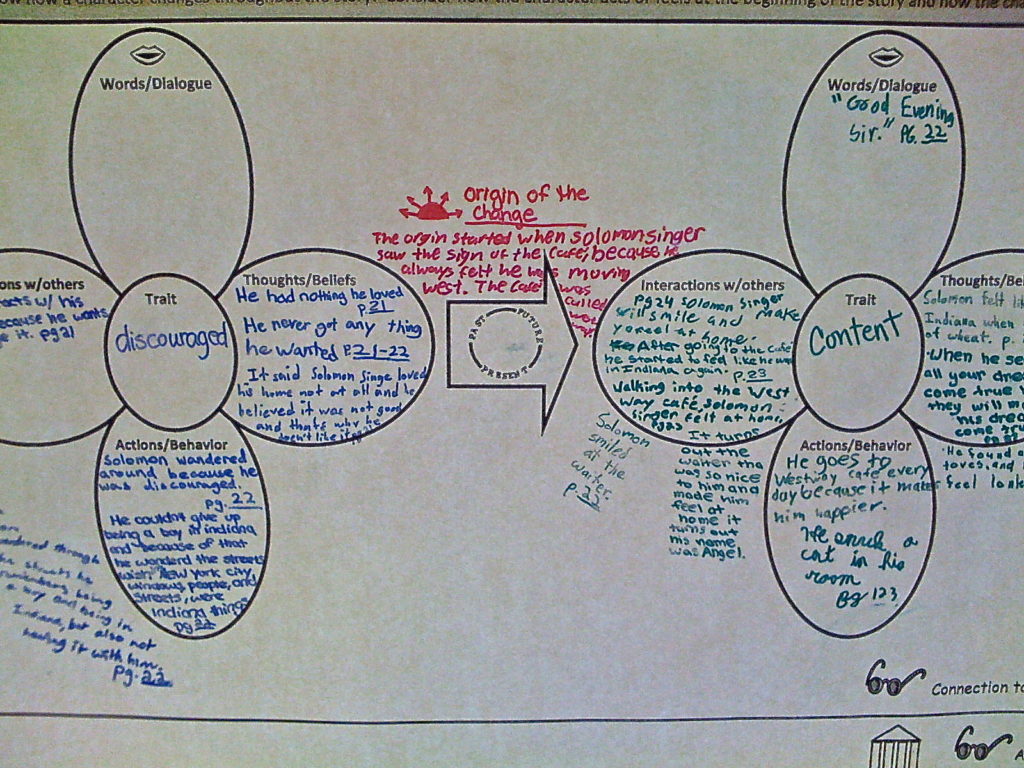 ow how a character changes throughout the story? Consider how the character acts or feels at the beginning of the story and how the cha
Words/Dialogue
ons w/others
acts w/ his
ecause he wants
e it. pg 21
Trait
discouraged
Thoughts/Beliefs
He had nothing he loved
p.21
He never got any thing
he wanted p.21-22
It said Solomon Singe loved
his home not at all and he
believed it was not good
and thats why he
doesn't like it
Actions/Behavior
Solomon wandered
around because he
was discouraged.
pg. 22
He couldn't give up
being a boy in indiana
and because of that
he wonderd the streets
wish New york city,
windows, people, and
Streets, were
indiana things
pg 22
through
streets he
being
a boy and being in
Indiana, but also not
having it with him.
Pg. 22
Origin of the
change
The orgin started when solomon singer
saw the sign of the cafe, because he
always felt he was moving
west. The cafe was
called
PAST
FUTURE
PRESENT
Words/Dialogue
"Good Evening
Sir." PG. 22
Interactions w/others
pg24 solomon singer
will smile and make
at home.
After going to the cafe
he started to fell like he was
in Indiana again. p.23
Walking into the West
Way café, Solomon
Singer felt at home,
It turns
out the
waiter tha
was so nice
to him and
made him
feel at
home it
turns out
his name
was Angel.
Solomon
smiled
at the
waiter.
p.22
Trait
Content
Thoughts/Be
Solomon felt li
Indiana when
of wheat. p.
When he se
all your drea
come true
they will m
his drea
come tru
He found a
loves, and
feel
Actions/Behavior
He goes to
Westway cafe every
day because it makes
him happier.
He snuck a
cat in his
room
Pg 123
Connection to
A